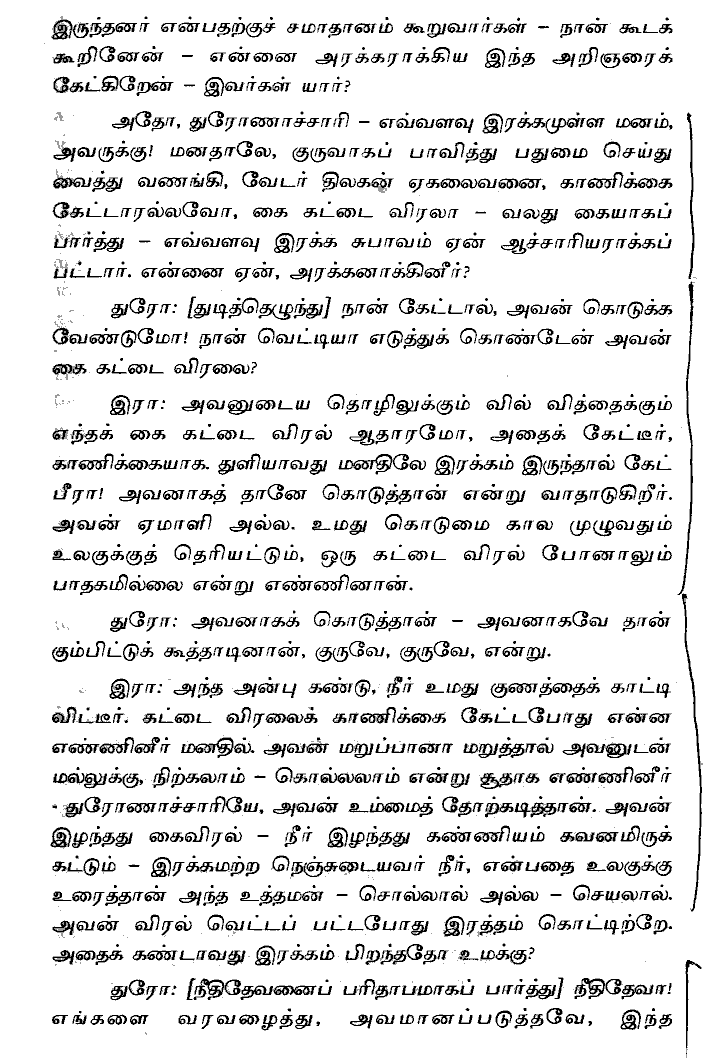 இருந்தனர் என்பதற்குச் சமாதானம் கூறுவார்கள் – நான் கூடக்
கூறினேன் – என்னை அரக்கராக்கிய இந்த அறிஞரைக்
கேட்கிறேன் – இவர்கள் யார்?
அதோ, துரோணாச்சாரி – எவ்வளவு இரக்கமுள்ள மனம்,
அவருக்கு! மனதாலே, குருவாகப் பாவித்து பதுமை செய்து
வைத்து வணங்கி, வேடர் திலகன் ஏகலைவனை, காணிக்கை
கேட்டாரல்லவோ, கை கட்டை விரலா – வலது கையாகப்
பார்த்து – எவ்வளவு இரக்க சுபாவம் ஏன் ஆச்சாரியராக்கப்
பட்டார். என்னை ஏன், அரக்கனாக்கினீர்?
துரோ: [துடித்தெழுந்து] நான் கேட்டால், அவன் கொடுக்க
வேண்டுமோ! நான் வெட்டியா எடுத்துக் கொண்டேன் அவன்
கை கட்டை விரலை?
இரா: அவனுடைய தொழிலுக்கும் வில் வித்தைக்கும்
எந்தக் கை கட்டை விரல் ஆதாரமோ, அதைக் கேட்டீர்,
காணிக்கையாக. துளியாவது மனதிலே இரக்கம் இருந்தால் கேட்
பீரா! அவனாகத் தானே கொடுத்தான் என்று வாதாடுகிறீர்.
அவன் ஏமாளி அல்ல. உமது கொடுமை கால முழுவதும்
உலகுக்குத் தெரியட்டும், ஒரு கட்டை விரல் போனாலும்
பாதகமில்லை என்று எண்ணினான்.
துரோ: அவனாகக் கொடுத்தான் – அவனாகவே தான்
கும்பிட்டுக் கூத்தாடினான், குருவே, குருவே, என்று.
இரா: அந்த அன்பு கண்டு, நீர் உமது குணத்தைக் காட்டி
விட்டீர். கட்டை விரலைக் காணிக்கை கேட்டபோது என்ன
எண்ணினீர் மனதில். அவன் மறுப்பானா மறுத்தால் அவனுடன்
மல்லுக்கு, நிற்கலாம் – கொல்லலாம் என்று சூதாக எண்ணினீர்
துரோணாச்சாரியே, அவன் உம்மைத் தோற்கடித்தான். அவன்
இழந்தது கைவிரல் – நீர் இழந்தது கண்ணியம் கவனமிருக்
கட்டும் – இரக்கமற்ற நெஞ்சுடையவர் நீர், என்பதை உலகுக்கு
உரைத்தான் அந்த உத்தமன் – சொல்லால் அல்ல – செயலால்.
அவன் விரல் வெட்டப் பட்டபோது இரத்தம் கொட்டிற்றே.
அதைக் கண்டாவது இரக்கம் பிறந்ததோ உமக்கு?
துரோ: [நீதிதேவனைப் பரிதாபமாகப் பார்த்து] நீதிதேவா!
எங்களை வரவழைத்து, அவமானப்படுத்தவே, இந்த